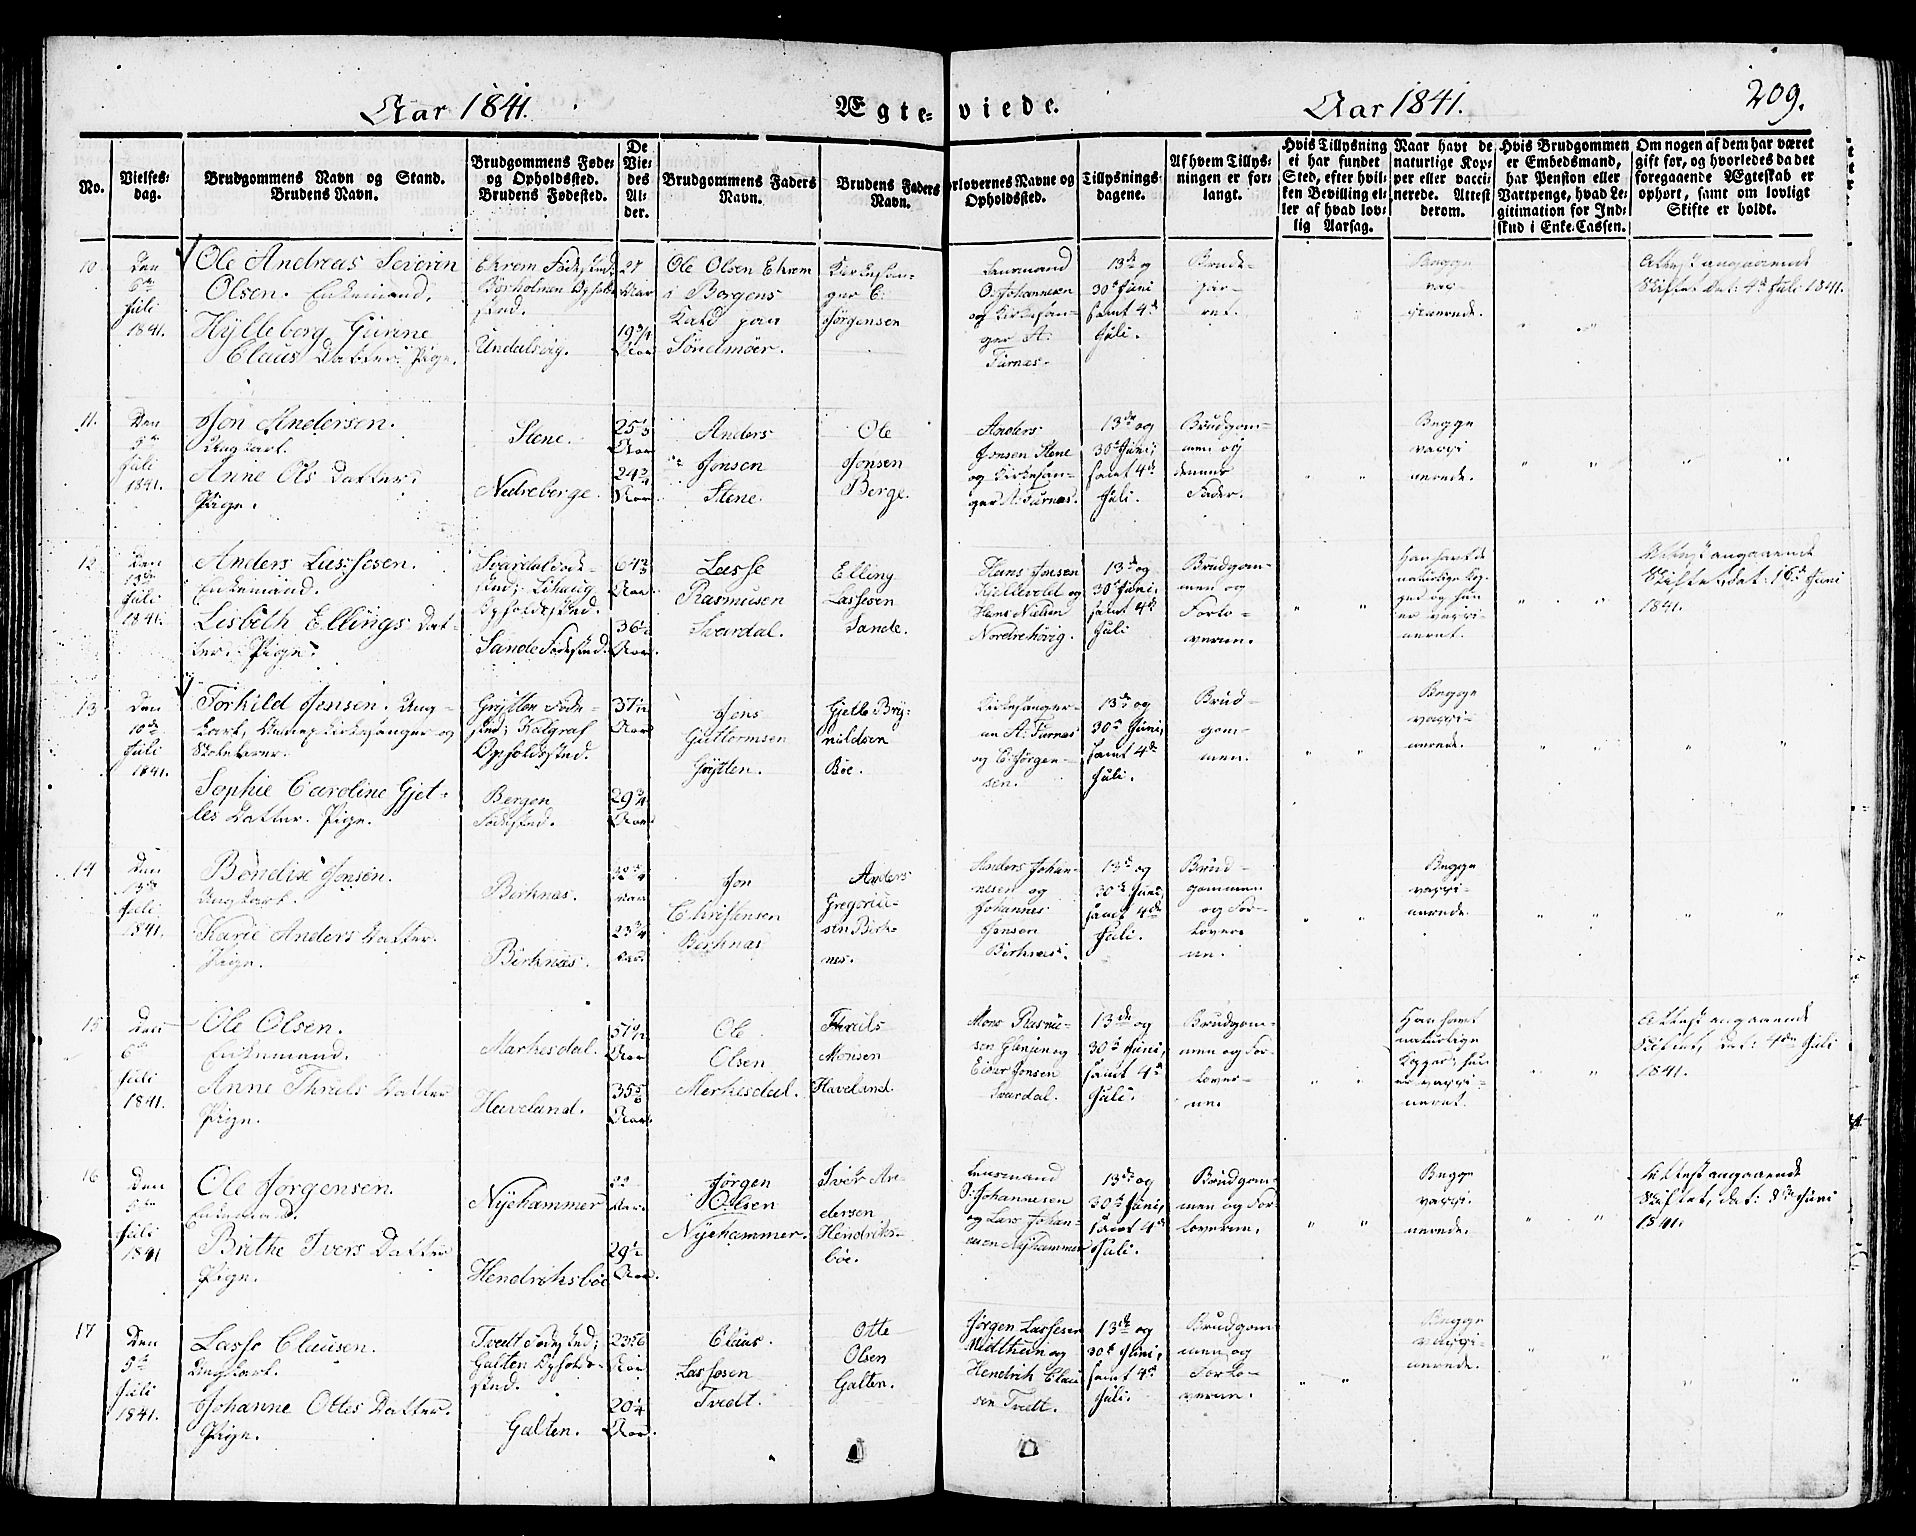 Aar 1841.
Ægte-
viede.
Aar 1841.
209.
No.
Vielses-
dag.
Brudgommens Navn og Stand.
Brudens Navn.
Brudgommens Føde-
og Opholdssted.
Brudens Fødested.
De
Vie-
des
Al-
der.
Brudgommens Faders
Navn.
Brudens Faders
Navn.
orlovernes Navne og
Opholdssted.
Tillysnings-
dagene.
Af hvem Tillys-
ningen er for-
langt.
Hvis Tillysning
ei har fundet
Sted, efter hvil-
ken Bevilling el-
ler af hvad lov-
lig Aarsag.
Naar havt de
naturlige Kop-
per eller vacci-
nerede. Attest
derom.
Hvis Brudgommen
er Embedsmand,
har Pension eller
Vartpenge, hvad Le-
gitimation for Ind-
skud i Enke-Cassen.
Om nogen af dem har været
gift for, og hvorledes da det
foregaaende Ægteskab er
ophørt, samt om lovligt
Skifte er holdt.
10
Den
6te
Juli
1841.
Ole Andreas Severin
Olsen. Enkemand.
Hylleberg Gurine
Claus Datter. Pige.
Ekrem Fødested
Borholmen Opholds-
sted.
Undalsvig.
27
Aar
19 3/4
Aar
Ole Olsen Ekrem
i Borgens
Kald paa
Søndmøer.
Kirkesan-
ger C.
Jørgensen
Lensmand
O. Johannesen
og Kirkesan-
ger A.
Furnes.
13de og
30te Juni
samt 4de
Juli.
Brude-
par-
ret.
Begge
vac-
cinerede.
" "
Attest angaaende
Skiftet dat: 4de Juli 1841.
11.
Den
5te
Juli
1841.
Jon Andersen.
Ungkarl.
Anne Ols Datter.
Pige.
Stene.
Nedreberge.
Aar
Aar
Anders
Jonsen
Stene.
Ole
Jonsen
Berge.
Anders
Jonsen Stene
og Kirkesan-
ger A. Furnes.
13de og
30te Juni,
samt 4de
Juli.
Brudgom-
men og
dennes
Fader.
" "
Begge
vacci
nerede.
" "
" "
12
Den
Juli
1841.
Anders Lassesen.
Enkemand.
Lisbeth Ellings Dat-
ter. Pige.
Svardal Føde-
sted; Lihaug
Opholdssted.
Sande Fødested.
Aar.
Aar.
Lasse
Rasmusen
Svardal.
Elling
Lassesen
Sande.
Hans Jonsen
Kjellevold og
Hans Nielsen
Nordrehovig.
13de og
30te Juni,
samt 4de
Juli
Brudgom-
men og
Forlo-
verne.
" "
Han havt de
naturlige Kop-
per og hun
er vacci-
neret.
" "
Attest angaaende
Skiftet, dat: 16de Juni
1841.
13
Den
10de
Juli
1841.
Torkild Jensen. Ung-
karl, Kirkesanger og
Skolelærer.
Sophie Caroline Gjet-
les Datter. Pige.
Grytten Føde-
sted; Kalgraf
Opholdssted.
Bergen
Fødested.
37 1/2
Aar
29 3/4
Aar
Jens
Guttormsen
Grytten.
Gjelle Bry-
nildsen
Boe.
Kirkesanger-
ne A. Furnes
og C. Jørgen-
sen.
13de og
30te Juni,
samt 4de
Juli.
Brud-
gom-
men.
" "
Begge
vacci-
nerede.
" "
" "
14
Den
13de
Juli
1841.
Bendix Jonsen.
Ungkarl.
Karie Anders Datter.
Pige.
Birknæs.
Birknæs.
Aar
23 3/4
Aar
Jon
Christensen
Berknæs
Anders
Gregoriu-
sen Birk-
nes.
Anders Johan-
nesen og
Johannes
Jonsen
Birknæs.
13de og
30te Juni,
samt 4de
Juli.
Brud-
gommen
og For-
lover-
ne.
" "
Begge
vacci-
nerede.
" "
" "
15
Den
6te
Juli
1841.
Ole Olsen.
Enkemand.
Anne Thruls Datter
Pige.
Markesdal.
Haveland.
51 1/2
Aar
35 5/6
Aar.
Ole
Olsen
Merkesdal.
Thruls
Monsen
Haveland.
Mons Rasmu-
sen Glenje og
Einer Jonsen
Svardal.
13de og
30te Juni,
samt 4de
Juli.
Brudgom-
men og For-
lover-
ne.
" "
Han havt
naturlige
Kopper; hun
er vacci-
neret.
" "
Attest angaaende
Skiftet, dat: 4de Juli
1841.
16
Den
Juli
1841
Ole Jørgensen.
Enkemand.
Brithe Ivers Datter
Pige.
Nyehammer
Hendriksbøe
Aar.
29 1/2
Aar.
Jørgen
Olsen
Nyehammer.
Iver An-
dersen
Hendriks-
bøe.
Lensmand
O. Johannesen
og Lars Johan-
nesen Nyhammer
13de og
30te Juni,
samt 4de
Juli.
Brudgom-
men og For-
loverne.
" "
Begge
vacci-
nerede.
" "
Attest angaaende
Skiftet, dat: 8de Juni
1841.
17
Den
5te
Juli
1841.
Lasse Clausen.
Ungkarl.
Johanne Ottes Datter.
Pige.
Tvedt Fødested;
Galten Opholds-
sted.
Galten.
23 5/6
Aar.
20 1/4
Aar.
Claus
Lassesen
Tvedt.
Otte
Olsen
Galten.
Jørgen Lassesen
Midtthun og
Hendrik Clau
sen Tvedt.
13de og
30te Juni,
samt 4de
Juli.
Brudgom-
men og
Forlo-
verne.
" "
Begge
vacci-
nerede.
" "
" "